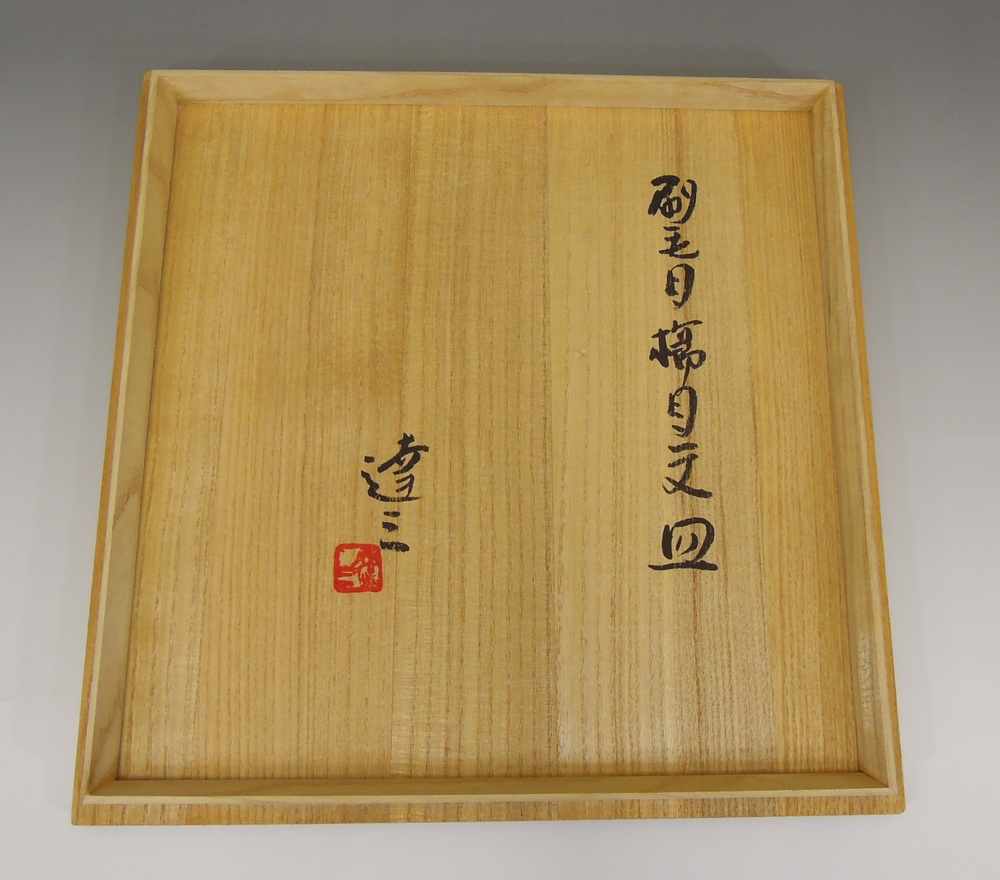 刷毛目櫛目文皿
達三